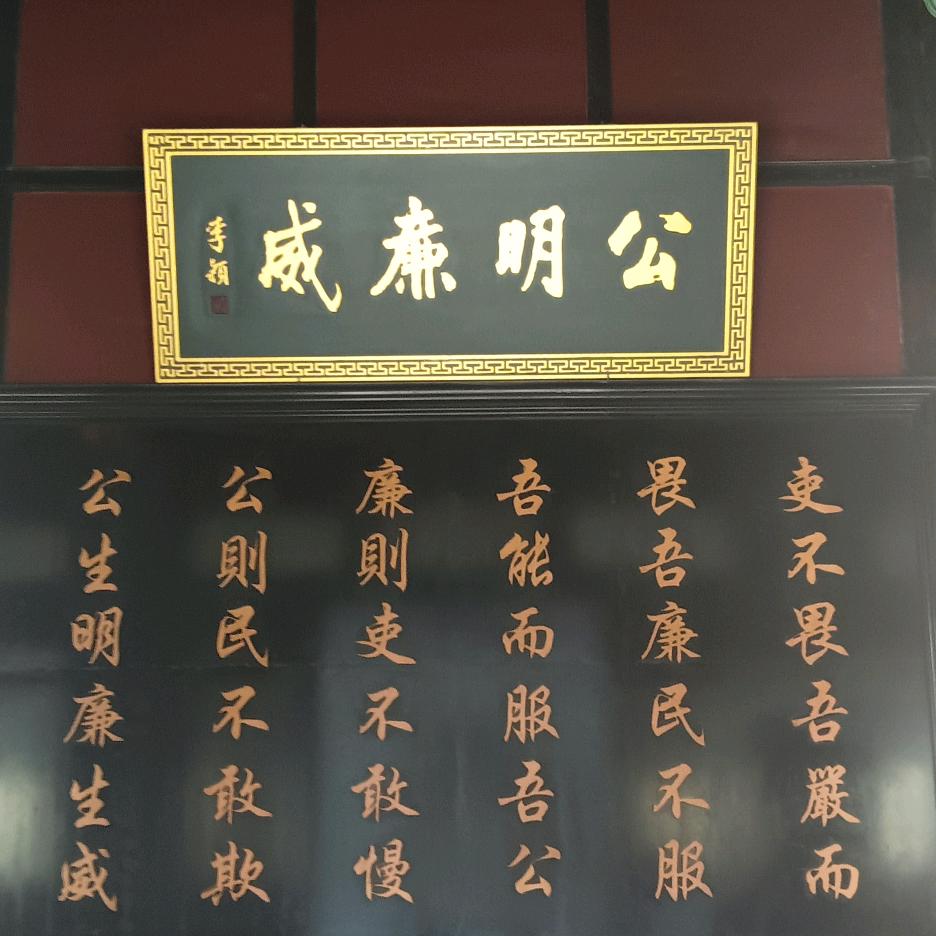 公明廉威
李穎
吏不畏吾嚴而
畏吾廉民不服
吾能而服吾公
廉則吏不敢慢
公則民不敢欺
公生明廉生威